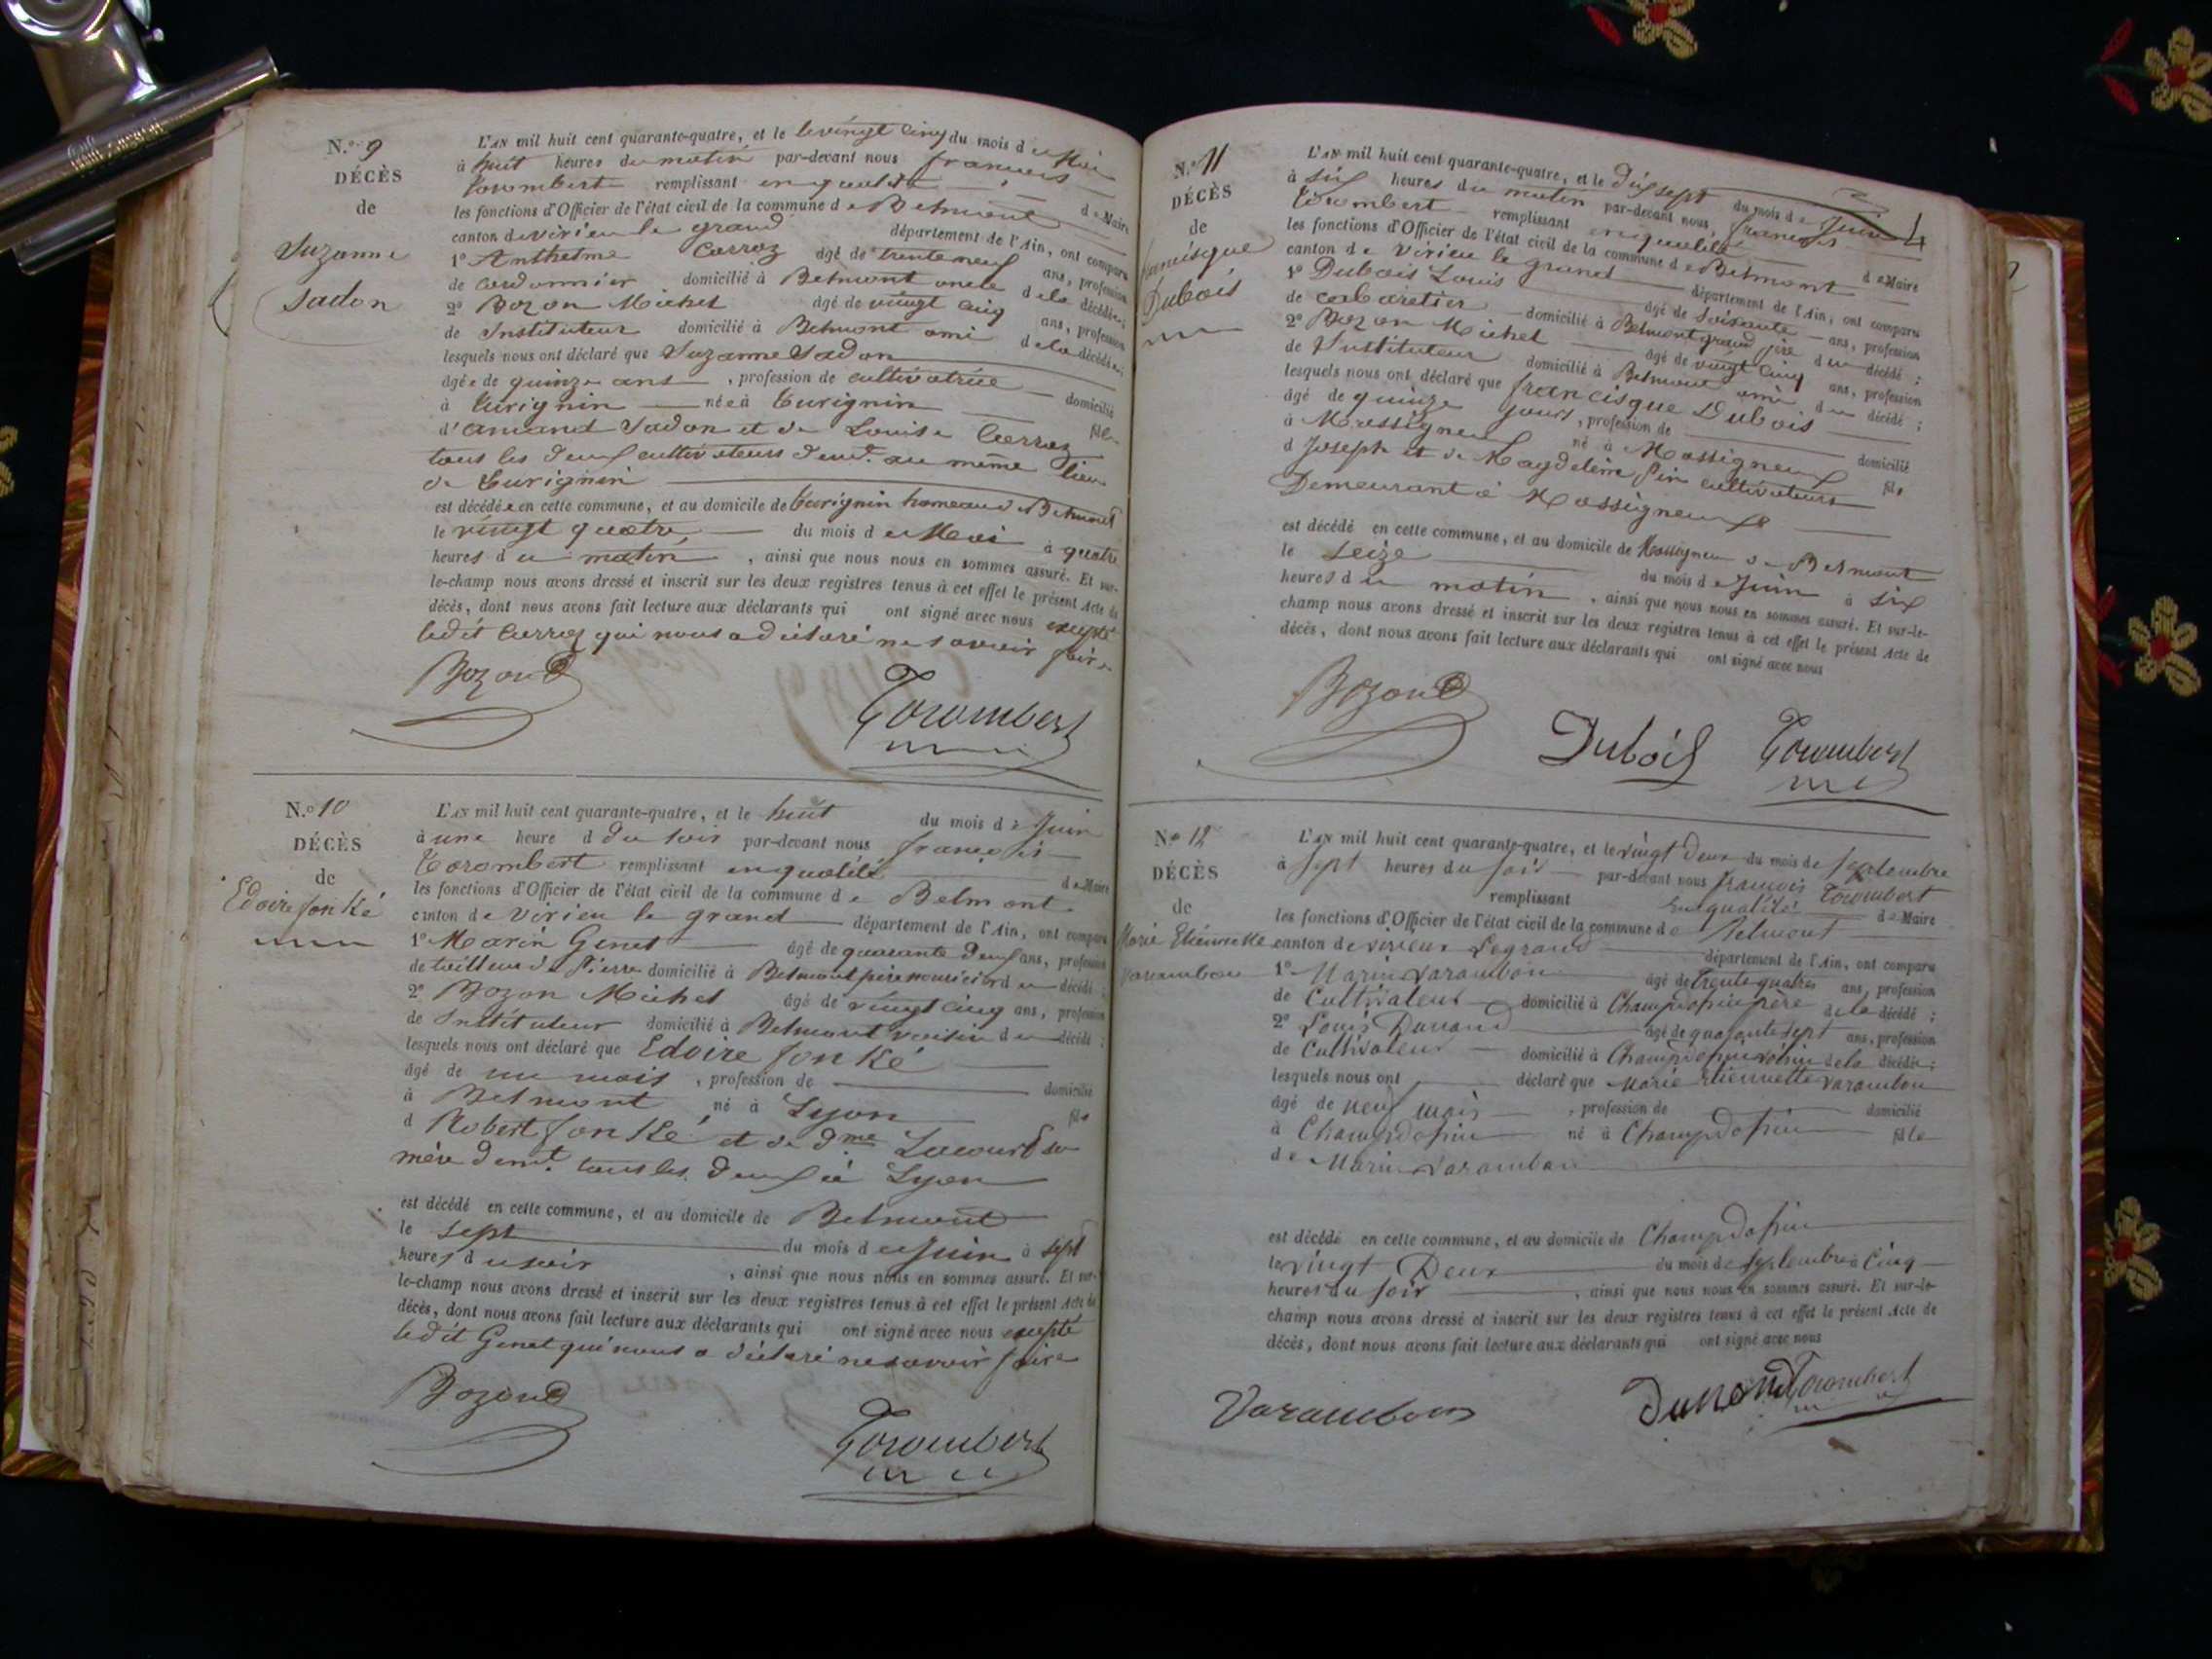 N.° 9
DÉCÈS
de
Suzanne
Sadon
L'AN mil huit cent quarante-quatre, et le le vingt cinq du mois de Mai
à huit heures du matin par-devant nous françois
Corombert remplissant en qualité de Maire
les fonctions d'Officier de l'état civil de la commune de Belmont
canton de virieu le grand département de l'Ain, ont comparu
1° Anthelme Carroz âgé de trente neuf ans, profession
de Cordonnier domicilié à Belmont oncle de la décédée;
2° Bozon Michel âgé de vingt cinq ans, profession
de Instituteur domicilié à Belmont ami de la décédée;
lesquels nous ont déclaré que Suzanne Sadon
âgée de quinze ans, profession de cultivatrice domicilié
à Curignin née à Curignin fille
d'amand Sadon et de Louise Carroz
tous les deux cultivateurs demt. au même lieu
de Curignin
est décédée en cette commune, et au domicile de Curignin hameau de Belmont
le vingt quatre du mois de Mai à quatre
heures du matin, ainsi que nous nous en sommes assuré. Et sur-
le-champ nous avons dressé et inscrit sur les deux registres tenus à cet effet le présent Acte de
décès, dont nous avons fait lecture aux déclarants qui ont signé avec nous excepté
ledit Carroz qui nous a déclaré ne savoir faire
Bozon
Corombert
N.° 10
DÉCÈS
de
Edoire fonKé
L'AN mil huit cent quarante-quatre, et le huit du mois de Juin
à une heure d du soir par-devant nous françois
Corombert remplissant en qualité de Maire
les fonctions d'Officier de l'état civil de la commune de Belmont
canton de virieu le grand département de l'Ain, ont comparu
1° Marin Genet âgé de quarante deux ans, profession
de tailleur de Pierre domicilié à Belmont père nouricier du décédé;
2° Bozon Michel âgé de vingt cinq ans, profession
de Instituteur domicilié à Belmont voisin du décédé;
lesquels nous ont déclaré que Edoire fonKé
âgé de un mois, profession de domicilié
à Belmont né à Lyon fils
d Robert fonKé et de dme Lacourt sa
mère demt. tous les deux à Lyon
est décédé en cette commune, et au domicile de Belmont
le sept du mois de Juin à sept
heures du soir, ainsi que nous nous en sommes assuré. Et sur-
le-champ nous avons dressé et inscrit sur les deux registres tenus à cet effet le présent Acte de
décès, dont nous avons fait lecture aux déclarants qui ont signé avec nous excepté
ledit Genet qui nous a déclaré ne savoir faire
Bozon
Corombert
N.° 11
DÉCÈS
de
francisque
Dubois
L'AN mil huit cent quarante-quatre, et le dix sept du mois de Juin
à six heures du matin par-devant nous, françois
Corombert remplissant en qualité de Maire
les fonctions d'Officier de l'état civil de la commune de Belmont
canton de Virieu le grand département de l'Ain, ont comparu
1° Dubois Louis âgé de soixante ans, profession
de cabaretier domicilié à Belmont grand père du décédé;
2° Bozon Michel âgé de vingt cinq ans, profession
de Instituteur domicilié à Belmont ami du décédé;
lesquels nous ont déclaré que francisque Dubois
âgé de quinze jours, profession de domicilié
à Massigneux né à Massigneux fils
d Joseph et de Magdeleine Pin cultivateurs
Demeurant à Massigneux
est décédé en cette commune, et au domicile de Massigneu de Belmont
le seize du mois de Juin à six
heures du matin, ainsi que nous nous en sommes assuré. Et sur-le-
champ nous avons dressé et inscrit sur les deux registres tenus à cet effet le présent Acte de
décès, dont nous avons fait lecture aux déclarants qui ont signé avec nous
Bozon
Dubois Corombert
N.° 12
DÉCÈS
de
Marie Etiennette
Varambon
L'AN mil huit cent quarante-quatre, et le vingt deux du mois de Septembre
à sept heures du soir par-devant nous françois Corombert
remplissant en qualité de Maire
les fonctions d'Officier de l'état civil de la commune de Belmont
canton de virieux Legrand département de l'Ain, ont comparu
1° Marin Varambon âgé de trente quatres ans, profession
de Cultivateur domicilié à Champdofin père de la décédé;
2° Louis Durand âgé de quarante sept ans, profession
de Cultivateur domicilié à Champdofin voisin de la décédée;
lesquels nous ont déclaré que Marie Etiennette Varambon
âgé de neuf mois, profession de domicilié
à Champdofin né à Champdofin fille
de Marin Varambon
est décédé en cette commune, et au domicile de Champdofin
le vingt Deux du mois de Septembre à Cinq
heures du soir, ainsi que nous nous en sommes assuré. Et sur-le-
champ nous avons dressé et inscrit sur les deux registres tenus à cet effet le présent Acte de
décès, dont nous avons fait lecture aux déclarants qui ont signé avec nous
Varambon Durand Corombert